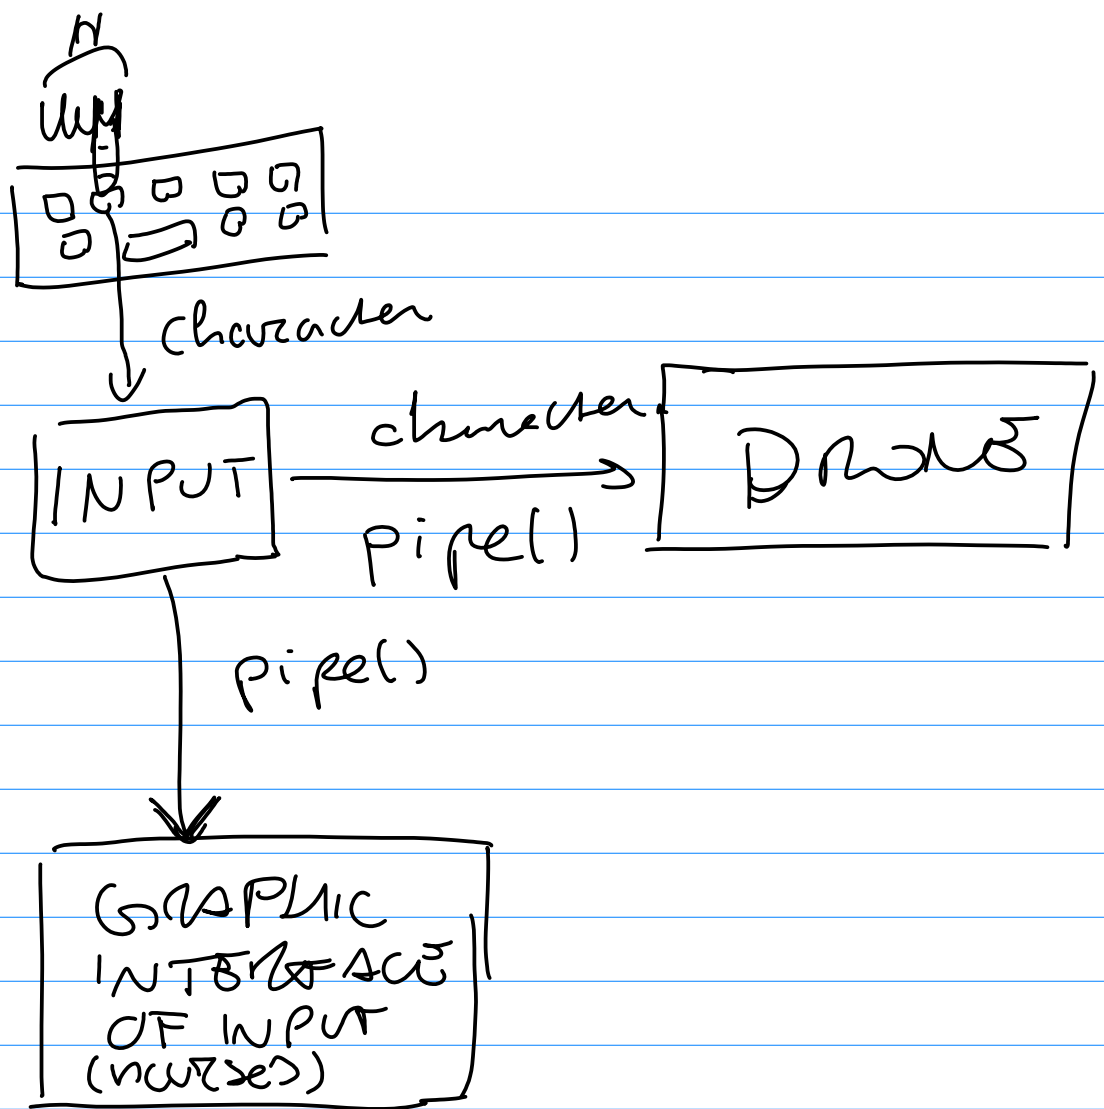 N
character
INPUT
character
pipe()
DRONE
pipe()
GRAPHIC
INTERFACE
OF INPUT
(ncurses)